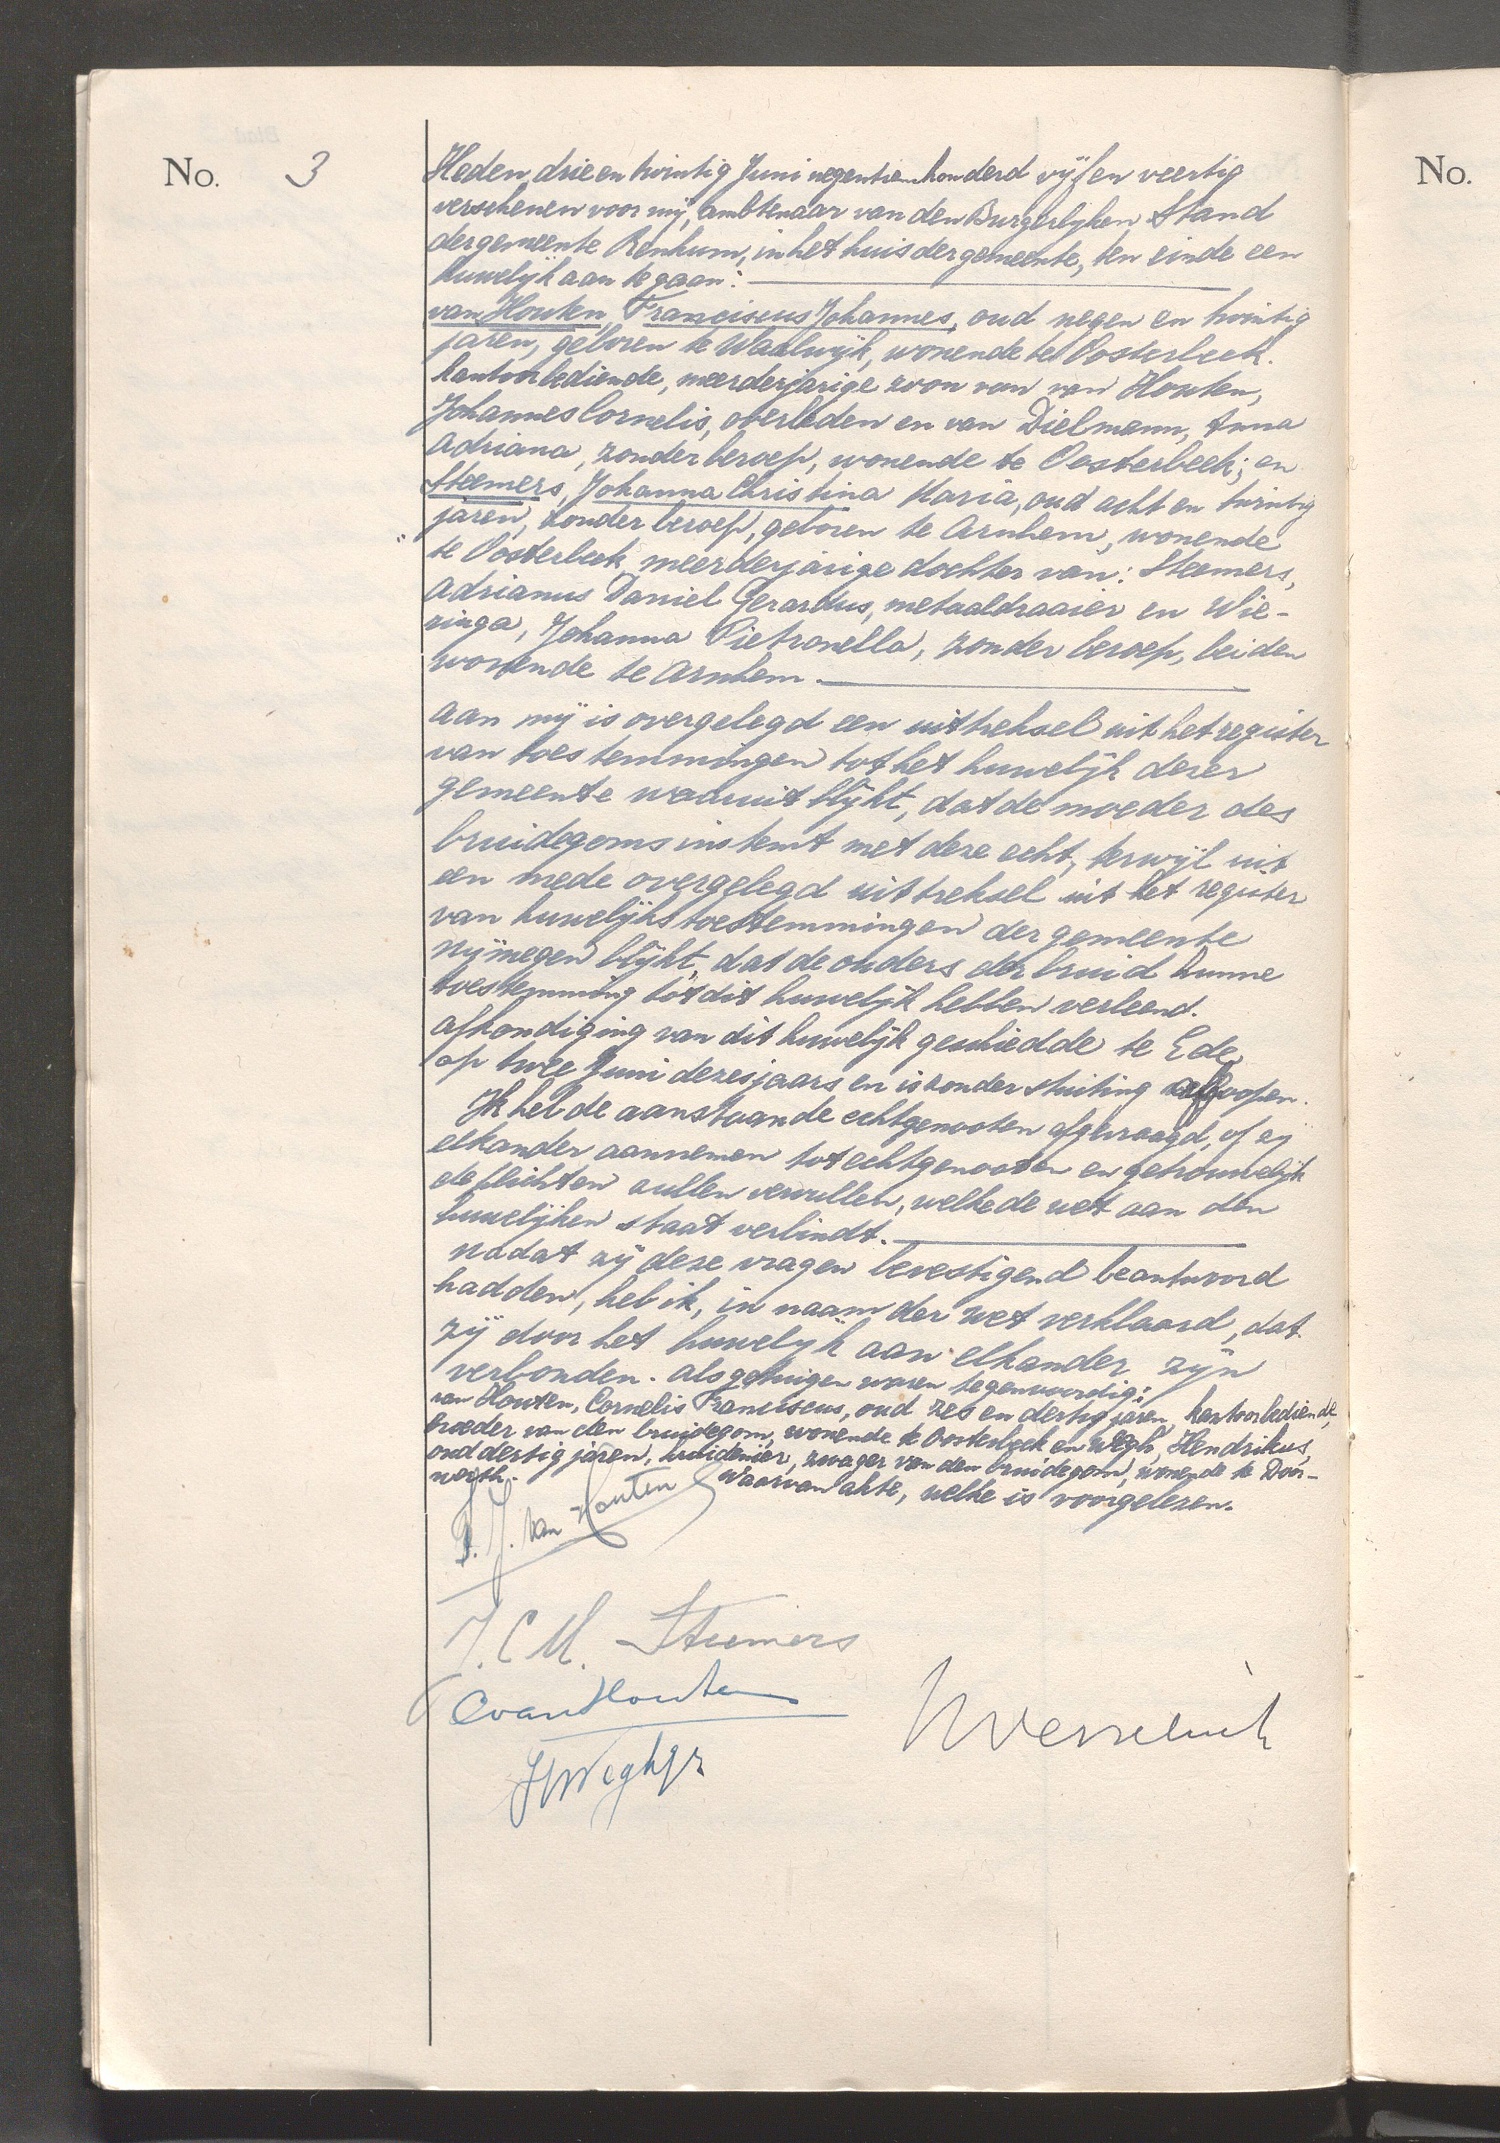 No. 3
No.
Heden, drie en twintig Juni negentienhonderd vijf en veertig
verschenen voor mij, ambtenaar van den Burgerlijken Stand
der gemeente Renkum, in het huis der gemeente, ten einde een
huwelijk aan te gaan:
van Houten, Franciscus Johannes, oud negen en twintig
jaren, geboren te Waalwijk, wonende te Oosterbeek.
kantoorbediende, meerderjarige zoon van van Houten,
Johannes Cornelis, overleden en van Dielmann, Anna
Adriana, zonder beroep, wonende te Oosterbeek; en
Steemers, Johanna Christina Maria, oud acht en twintig
jaren, zonder beroep, geboren te Arnhem, wonende
te Oosterbeek, meerderjarige dochter van: Steemers,
Adrianus Daniel Gerardus, metaaldraaier en Wie-
ringa, Johanna Pietronella, zonder beroep, beiden
wonende te Arnhem.
Aan mij is overgelegd een uittreksel uit het register
van toestemmingen tot het huwelijk dezer
gemeente waaruit blijkt, dat de moeder des
bruidegoms instemt met deze echt, terwijl uit
een mede overgelegd uittreksel uit het register
van huwelijkstoestemmingen der gemeente
Nijmegen blijkt, dat de ouders der bruid hunne
toestemming tot dit huwelijk hebben verleend.
Afkondiging van dit huwelijk geschiedde te Ede
op twee Juni dezes jaars en is zonder stuiting afgeloopen.
Ik heb de aanstaande echtgenooten afgevraagd, of zij
elkander aannemen tot echtgenooten en getrouwelijk
de plichten zullen vervullen, welke de wet aan den
huwelijken staat verbindt.
Nadat zij deze vragen bevestigend beantwoord
hadden, heb ik, in naam der wet verklaard, dat
zij door het huwelijk aan elkander zijn
verbonden. Als getuigen waren tegenwoordig:
van Houten, Cornelis Franciscus, oud zes en dertig jaren, kantoorbediende,
broeder van den bruidegom, wonende te Oosterbeek en Wegh, Hendrikus,
oud dertig jaren, kruidenier, zwager van den bruidegom, wonende te Door-
werth. Waarvan akte, welke is voorgelezen.
F. J. van Houten
J. C M. Steemers
C van Houten
H Wegh